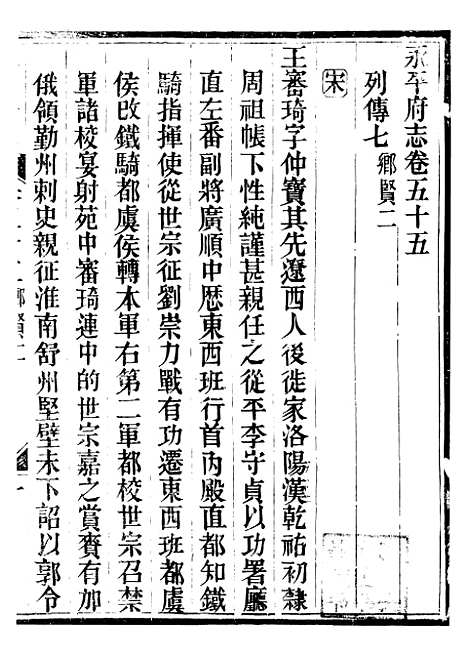 永平府志卷五十五
列傳七鄉賢二
宋
王審琦字仲寶其先遼西人後徙家洛陽漢乾祐初隸
周祖帳下性純謹甚親任之從平李守貞以功署廳
直左番副將廣順中歷東西班行首內殿直都知鐵
騎指揮使從世宗征劉崇力戰有功遷東西班都虞
侯改鐵騎都虞侯轉本軍右第二軍都校世宗召禁
軍諸校宴射苑中審琦連中的世宗嘉之賞賚有加
俄領勤州刺史親征淮南舒州堅壁未下詔以郭令